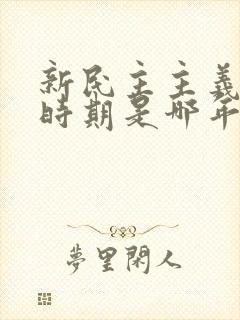 新民主主義
時期是哪年
夢里閑人